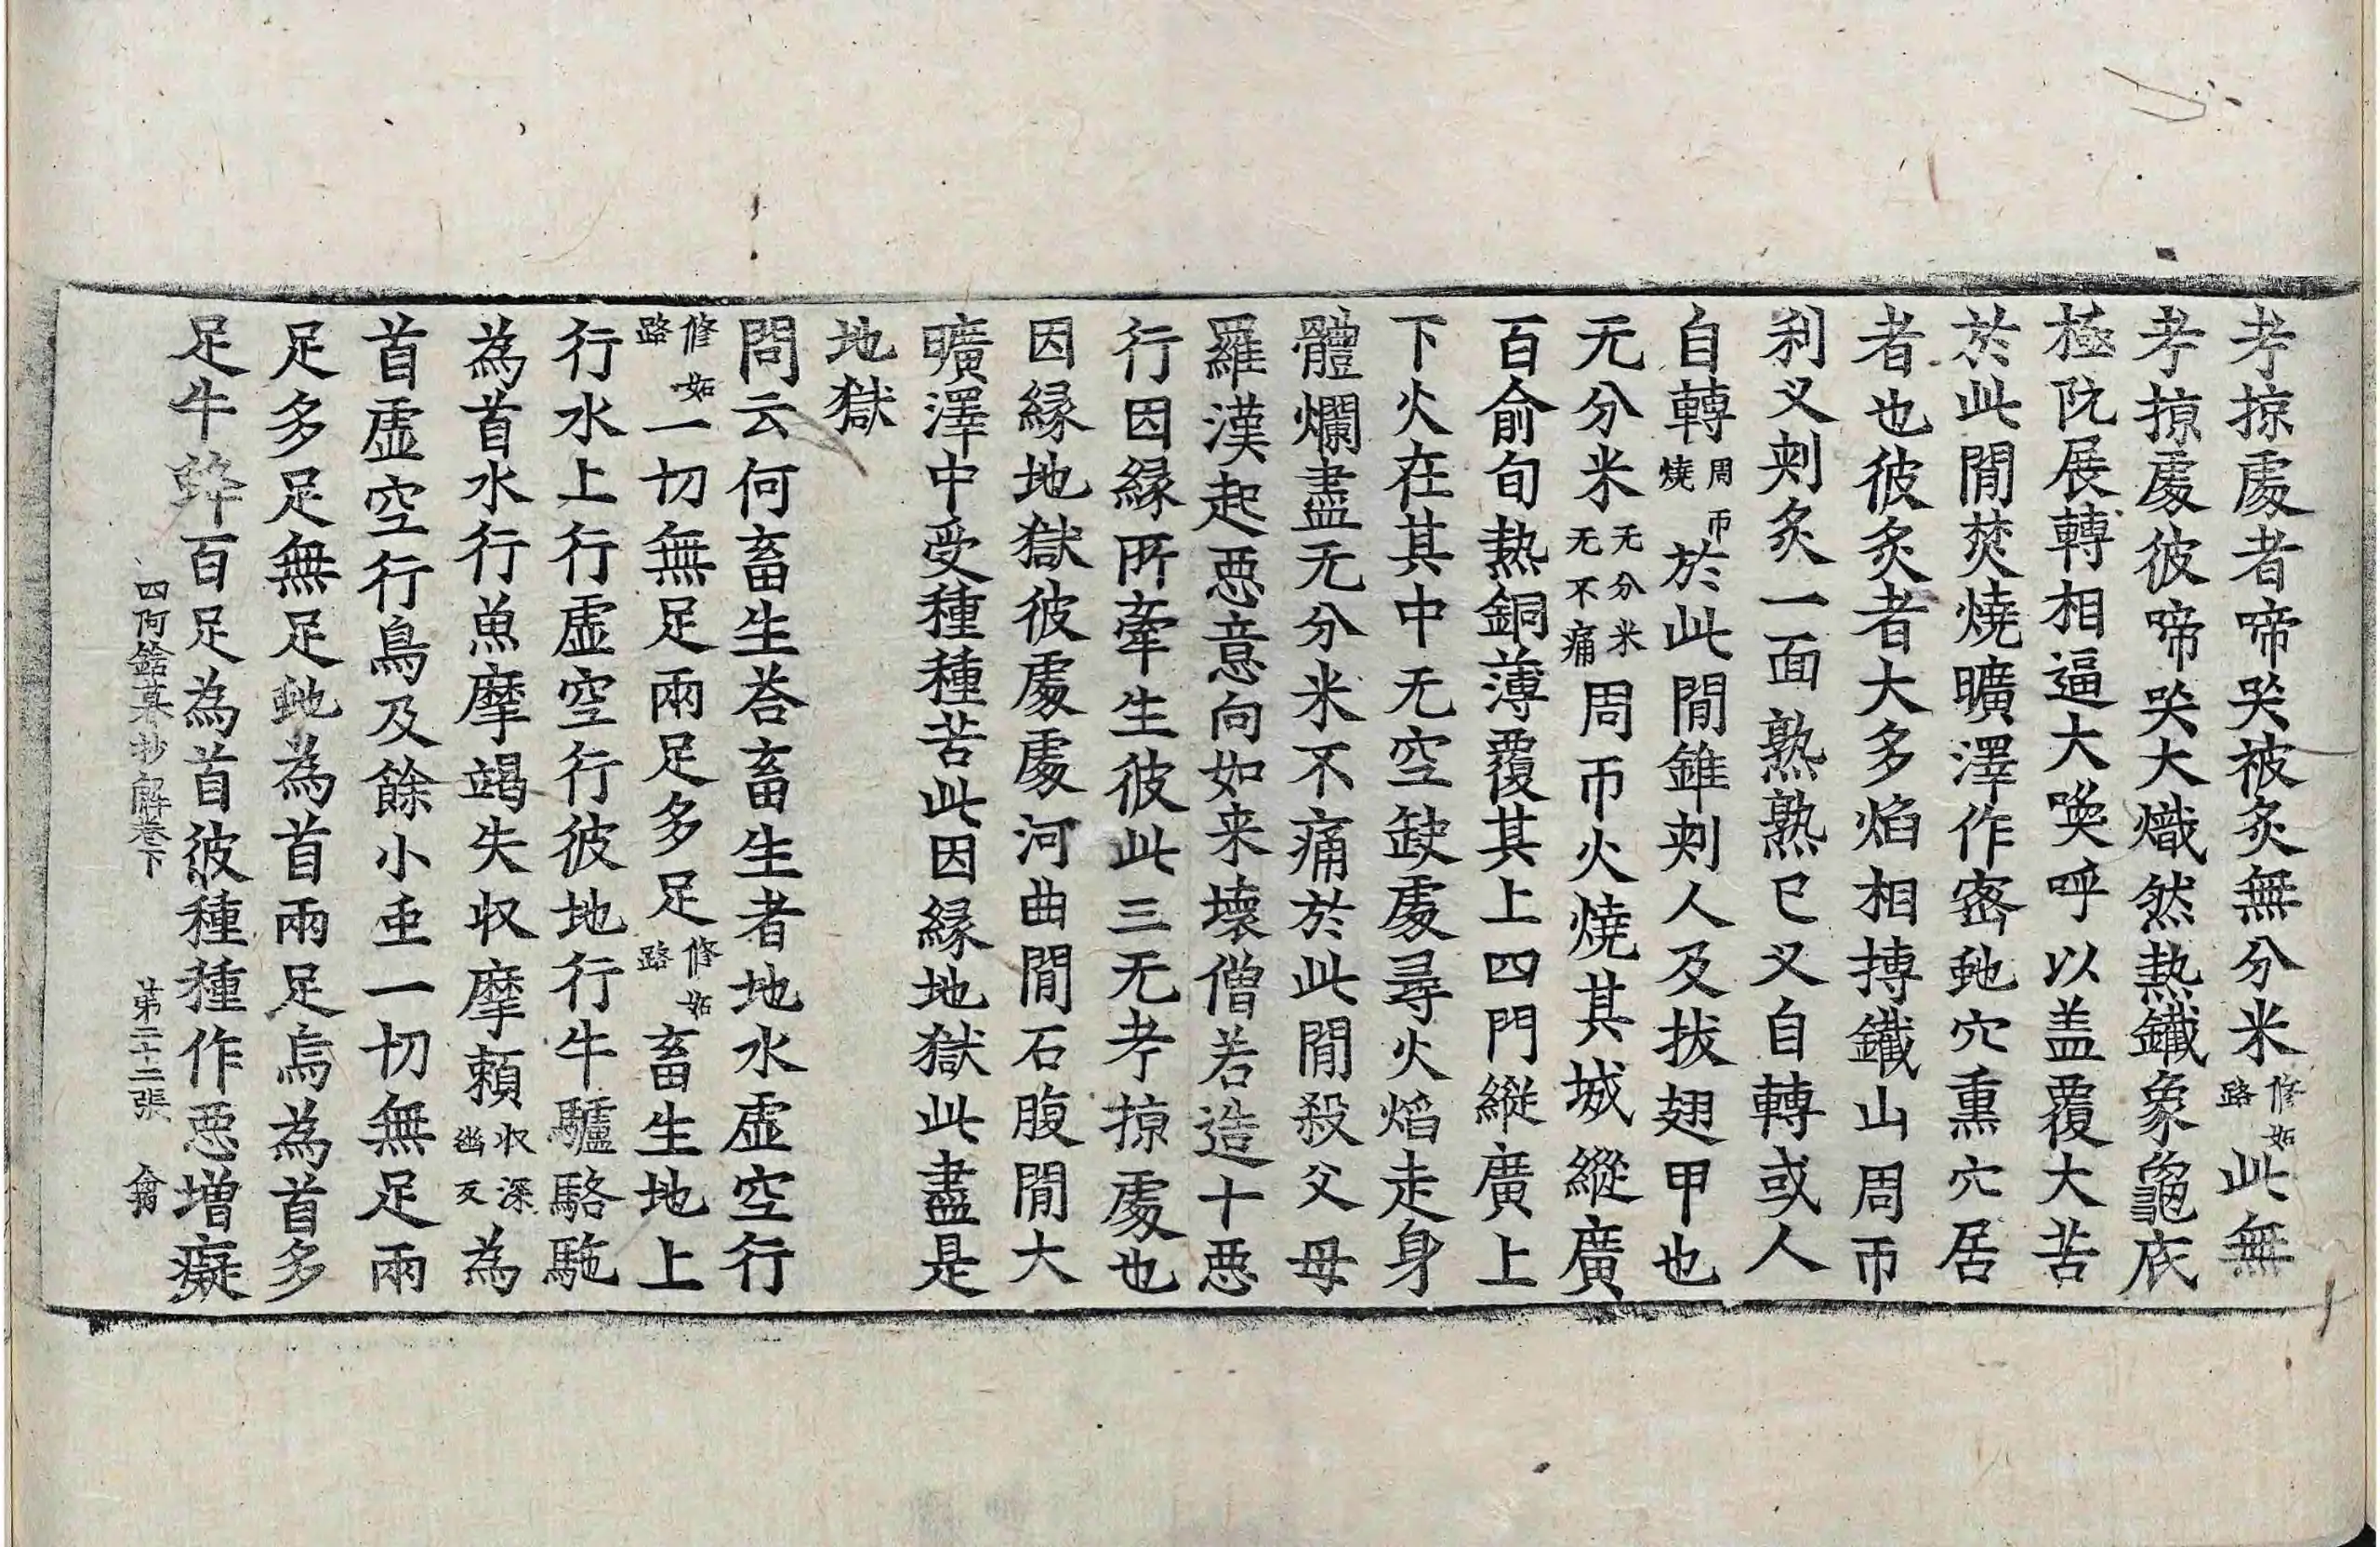 考掠處者啼哭被炙無分米修妬路此無
考掠處彼啼哭大熾然熱鐵象龜底
極阬展轉相逼大喚呼以盖覆大苦
於此間焚燒曠澤作密虵穴熏穴居
者也彼炙者大多焰相摶鐵山周帀
刹叉刺炙一面熟熟已叉自轉或人
自轉周帀燒於此間錐刺人及拔翅甲也
无分米无分米无不痛周帀火燒其城縱廣
百俞旬熱銅薄覆其上四門縱廣上
下火在其中无空缺處尋火焰走身
體爛盡无分米不痛於此間殺父母
羅漢起惡意向如来壞僧若造十惡
行因縁所牽生彼此三无考掠處也
因縁地獄彼處處河曲間石腹間大
曠澤中受種種苦此因縁地獄此盡是
地獄
問云何畜生荅畜生者地水虛空行
修妬路一切無足兩足多足修妬路畜生地上
行水上行虛空行彼地行牛驢駱駞
為首水行魚摩竭失收摩賴收深凾反為
首虛空行鳥及餘小䖝一切無足兩
足多足無足虵為首兩足烏為首多
足牛百足為首彼種種作惡增癡
四阿鋡暮抄解卷下 第二十二張